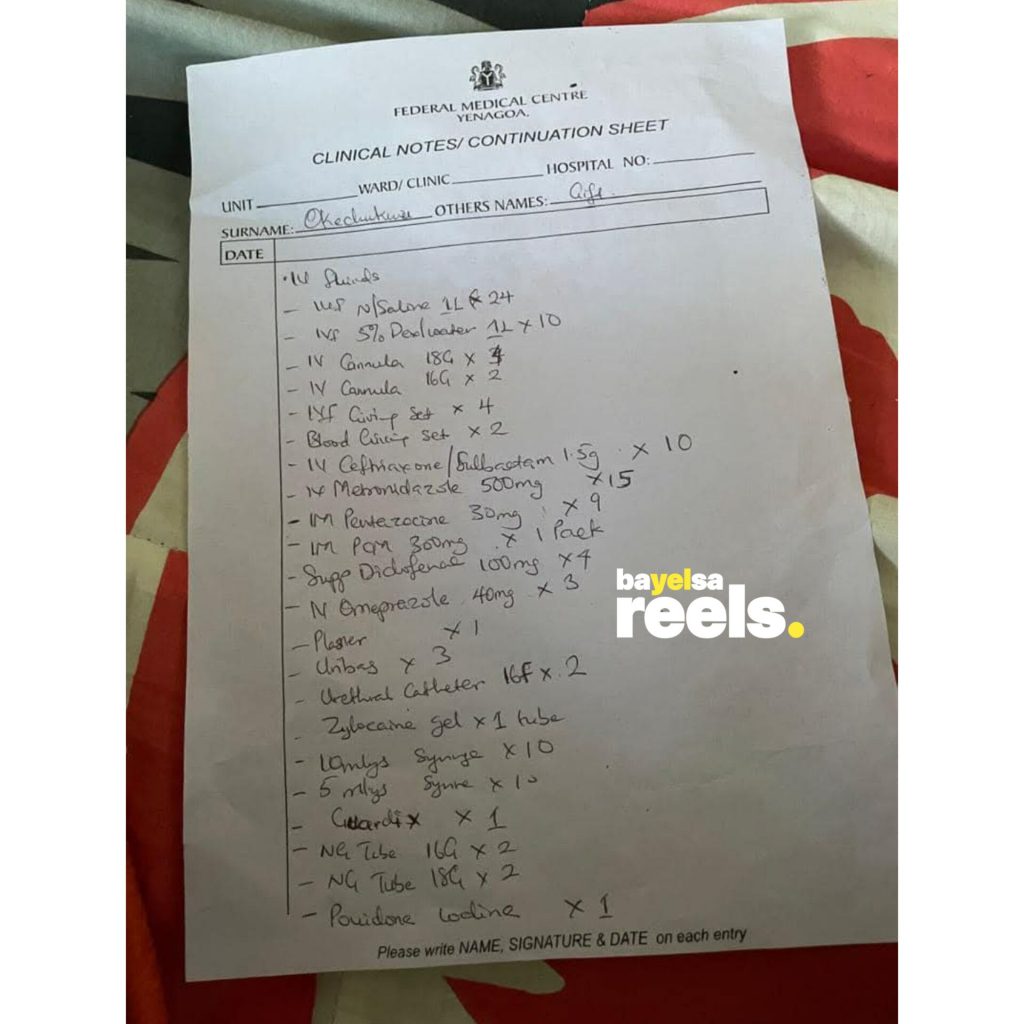 FEDERAL MEDICAL CENTRE
YENAGOA.
CLINICAL NOTES/ CONTINUATION SHEET
UNIT WARD/ CLINIC HOSPITAL NO:
SURNAME: Okechukwu OTHERS NAMES: Gift
DATE
IV fluids
- IVF N/Saline 1L x 24
- IVF 5% Dex/water 1L x 10
- IV Cannula 18G x
- IV Cannula 16G x 2
- IVF Giving Set x 4
- Blood Giving Set x 2
- IV Ceftriaxone/Sulbactam 1.5g x 10
- IV Metronidazole 500mg x 15
- IM Pentazocine 30mg x 9
- IM PCM 300mg x 1 Pack
- Supp Diclofenac 100mg x 4
- IV Omeprazole 40mg x 3
- Plaster x 1
- x 3
- Urethral Catheter 16F x 2
Zylocaine gel x 1 tube
- 10mlys Syringe x 10
- 5 mlys x 10
- Guardix x 1
- NG Tube 16G x 2
- NG Tube 18G x 2
- Povidone Iodine x 1
Please write NAME, SIGNATURE & DATE on each entry
bayelsa
reels.